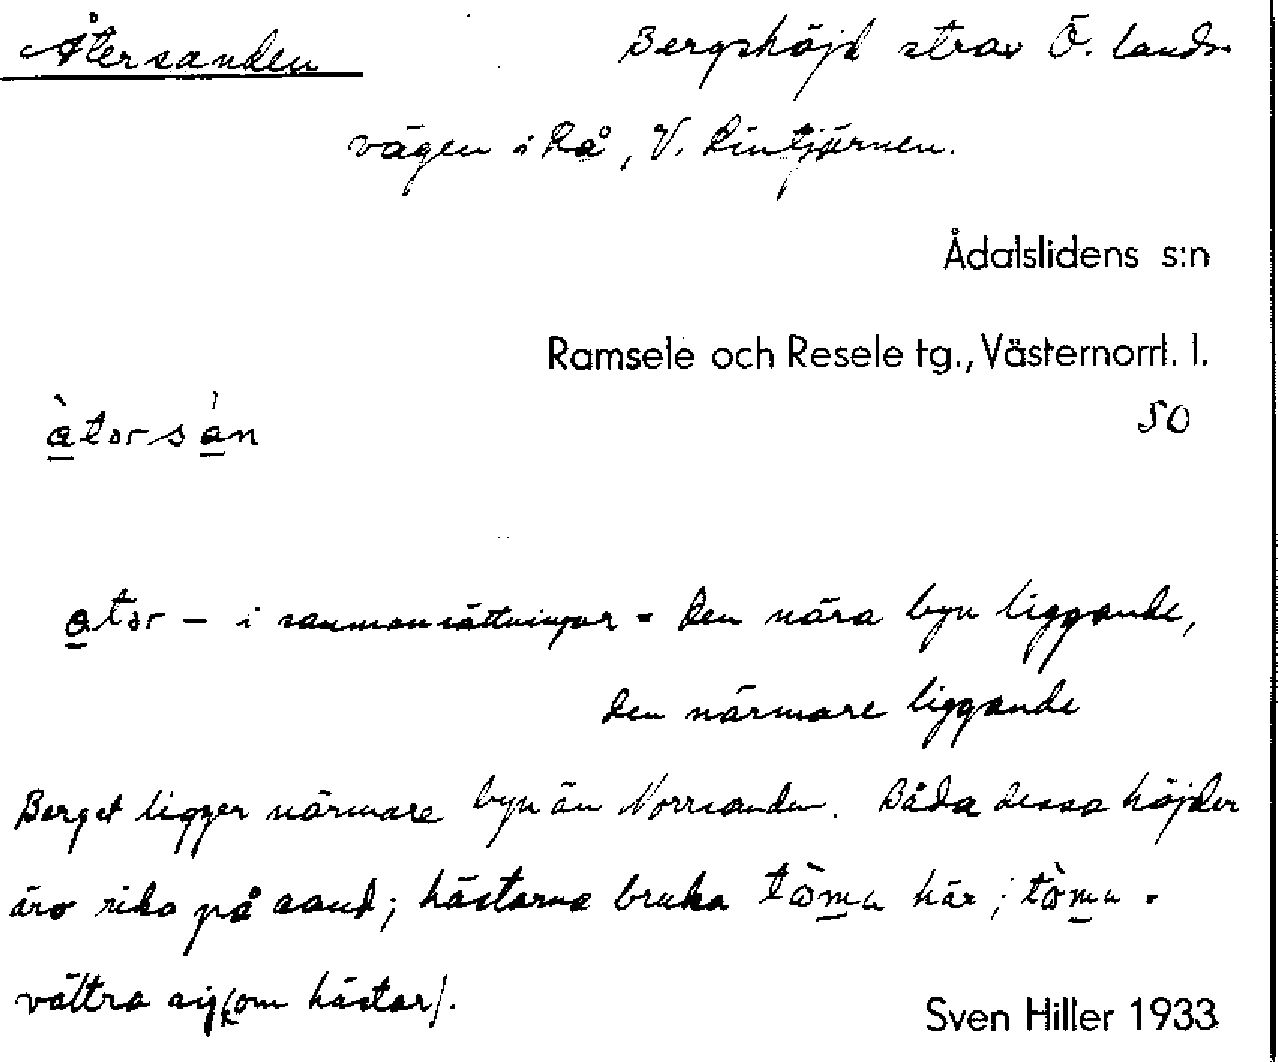 Återsanden Bergshöjd strax Ö. lands-
vägen i Rå, V. Rintjärnen.
Ådalslidens s:n
Ramsele och Resele tg., Västernorrl. l.
àtərsán 50
atər – i sammansättningar = den nära byn liggande,
den närmare liggande
Berget ligger närmare byn än Norrsanden. Båda dessa höjder
äro rika på sand; hästarna bruka tö̀ma här; tö̀ma =
vältra sig (om hästar).
Sven Hiller 1933